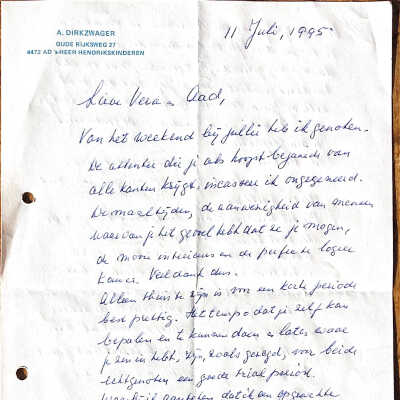 A. DIRKZWAGER
OUDE RIJKSWEG 27
4472 AD 's-HEER HENDRIKSKINDEREN
11 Juli, 1995.
Lieve Vera en Aad,
Van het weekend bij jullie heb ik genoten.
De attentie die je als hoogst bejaarde van
alle kanten krijgt, incasseer ik ongegeneerd.
De maaltijden, de aanwezigheid van mensen
waarvan je het gevoel hebt dat ze je mogen,
de mooie interieurs en de perfecte logeer
kamer. Veel dank dus.
Alleen thuis te zijn is voor een korte periode
best prettig. Het tempo dat je zelf kan
bepalen en te kunnen doen en laten waar
je zin in hebt, zijn, zoals gezegd, voor beide
echtgenoten een goede trial period.
dat ik een opgerachte